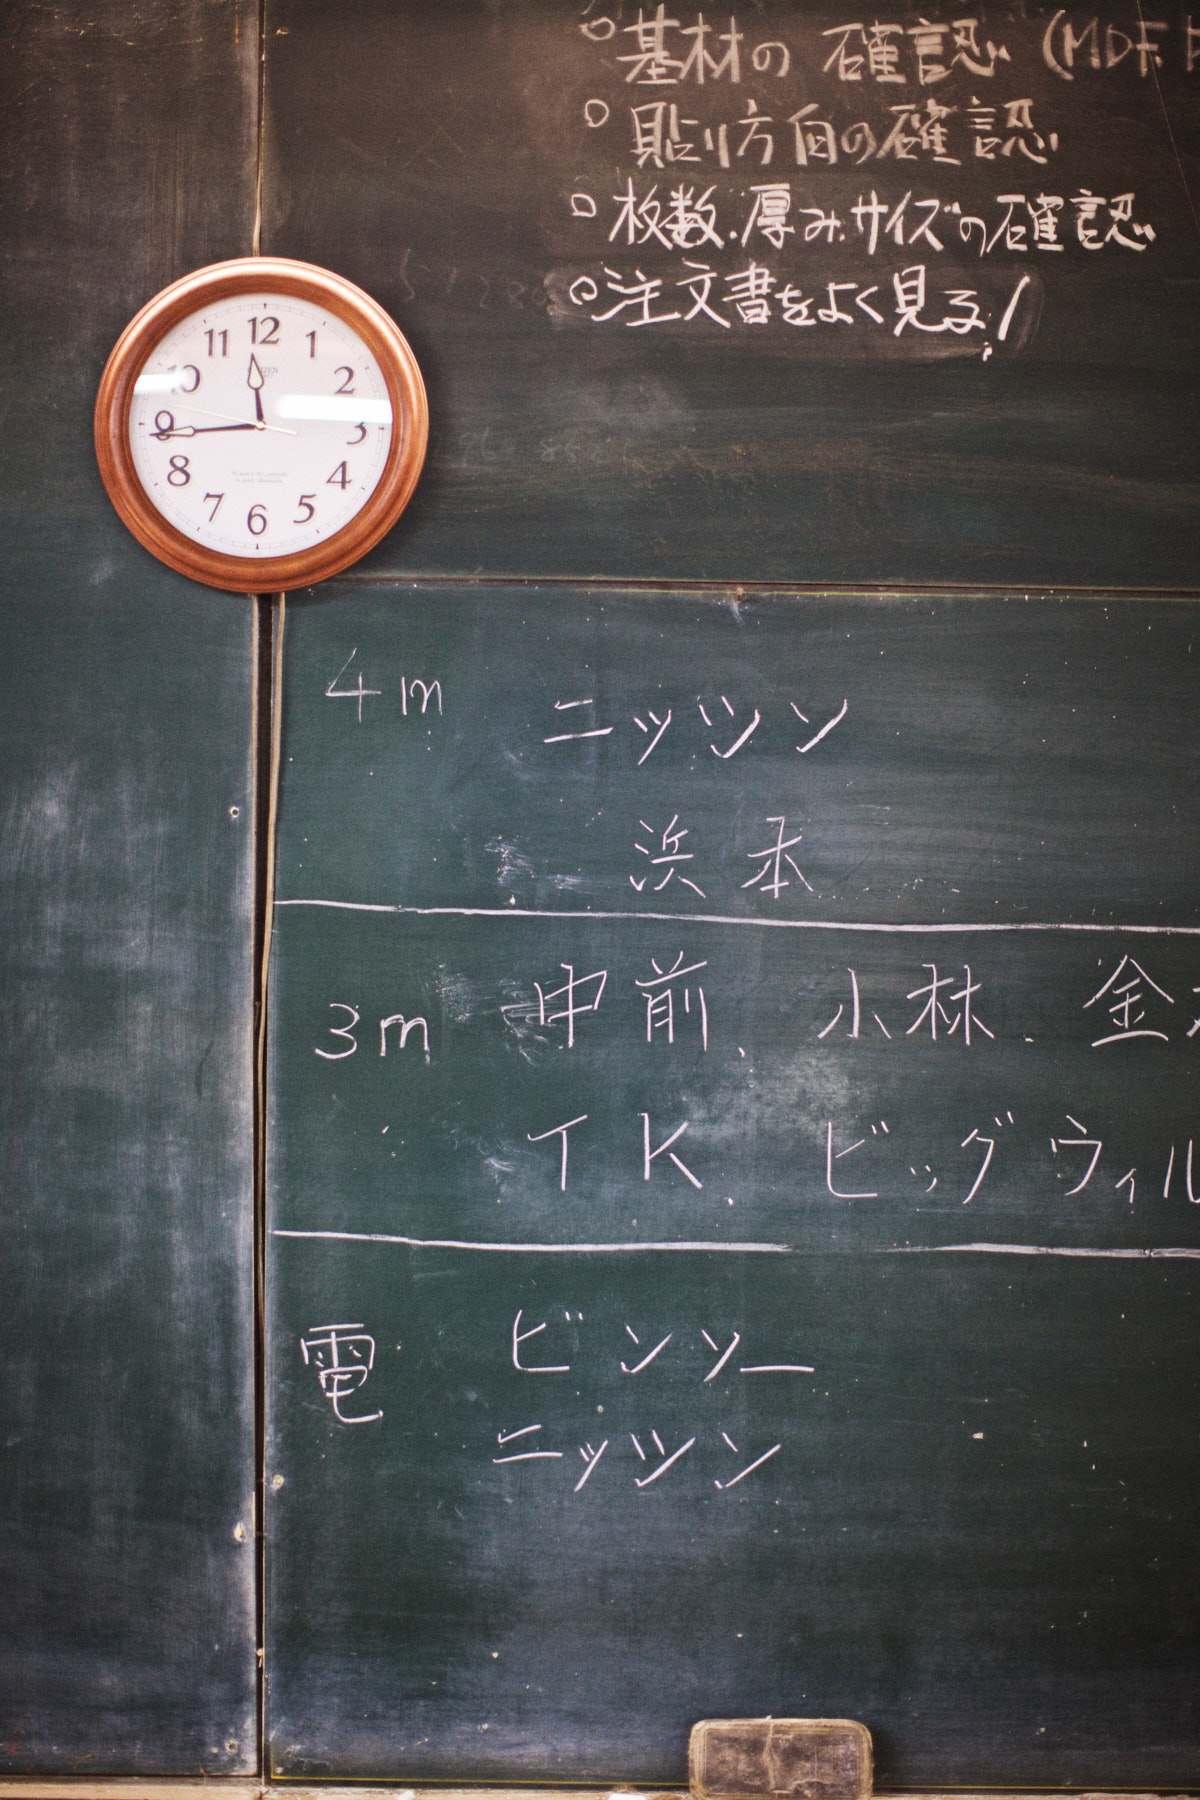 ○基材の確認 (MDF.
○貼り方向の確認
○枚数.厚み.サイズの確認
○注文書をよく見る!
11 12 1
10 2
9 3
8 4
7 6 5
4m ニッツン
浜本
3m 中前、小林、金
TK、ビッグウィル
電 ビンソー
ニッツン